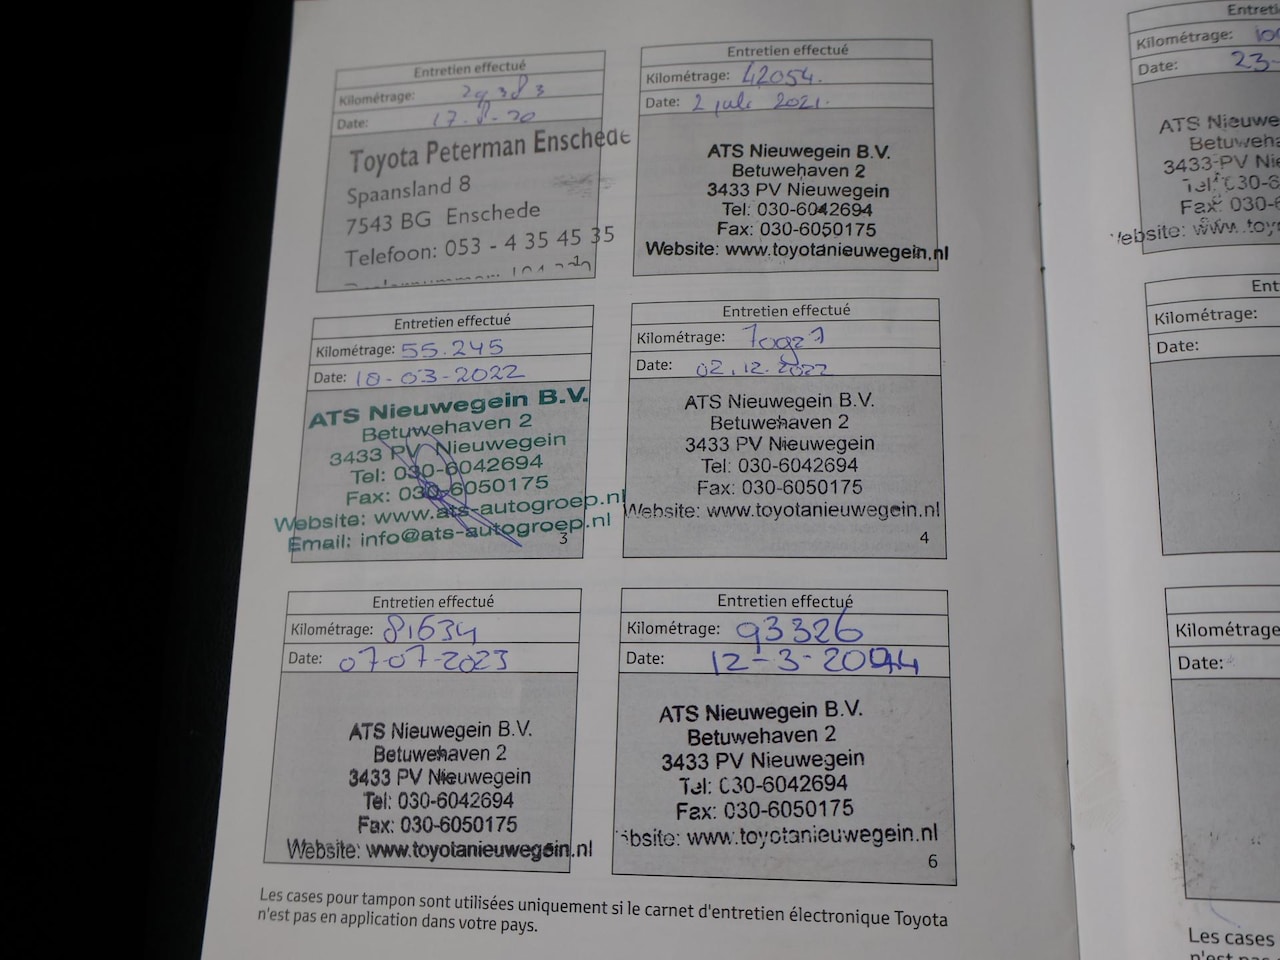 Entretien effectué
Kilométrage: 29383
Date: 17-8-20
Toyota Peterman Enschede
Spaansland 8
7543 BG Enschede
Telefoon: 053 - 4 35 45 35
1
Entretien effectué
Kilométrage: 42054.
Date: 2 juli 2021.
ATS Nieuwegein B.V.
Betuwehaven 2
3433 PV Nieuwegein
Tel: 030-6042694
Fax: 030-6050175
Website: www.toyotanieuwegein.nl
Entretien effectué
Kilométrage: 55.245
Date: 10-03-2022
ATS Nieuwegein B.V.
Betuwehaven 2
3433 PV Nieuwegein
Tel: 030-6042694
Fax: 030-6050175
Website: www.ats-autogroep.nl
Email: info@ats-autogroep.nl
3
Entretien effectué
Kilométrage:
Date: 02.12.2022
ATS Nieuwegein B.V.
Betuwehaven 2
3433 PV Nieuwegein
Tel: 030-6042694
Fax: 030-6050175
Website: www.toyotanieuwegein.nl
4
Entretien effectué
Kilométrage: 81634
Date: 07-07-2023
ATS Nieuwegein B.V.
Betuwehaven 2
3433 PV Nieuwegein
Tel: 030-6042694
Fax: 030-6050175
Website: www.toyotanieuwegein.nl
Entretien effectué
Kilométrage: 93326
Date: 12-3-
ATS Nieuwegein B.V.
Betuwehaven 2
3433 PV Nieuwegein
Tel: 030-6042694
Fax: 030-6050175
bsite: www.toyotanieuwegein.nl
6
Les cases pour tampon sont utilisées uniquement si le carnet d'entretien électronique Toyota
n'est pas en application dans votre pays.
Entreti
Kilométrage: 10
Date: 23-
ATS Nieuwe
Betuweha
3433 PV Ni
Tel: 030-6
Fax: 030-6
ebsite: www.toyo
Ent
Kilométrage:
Date:
Kilométrage
Date:
Les cases
n'est pas